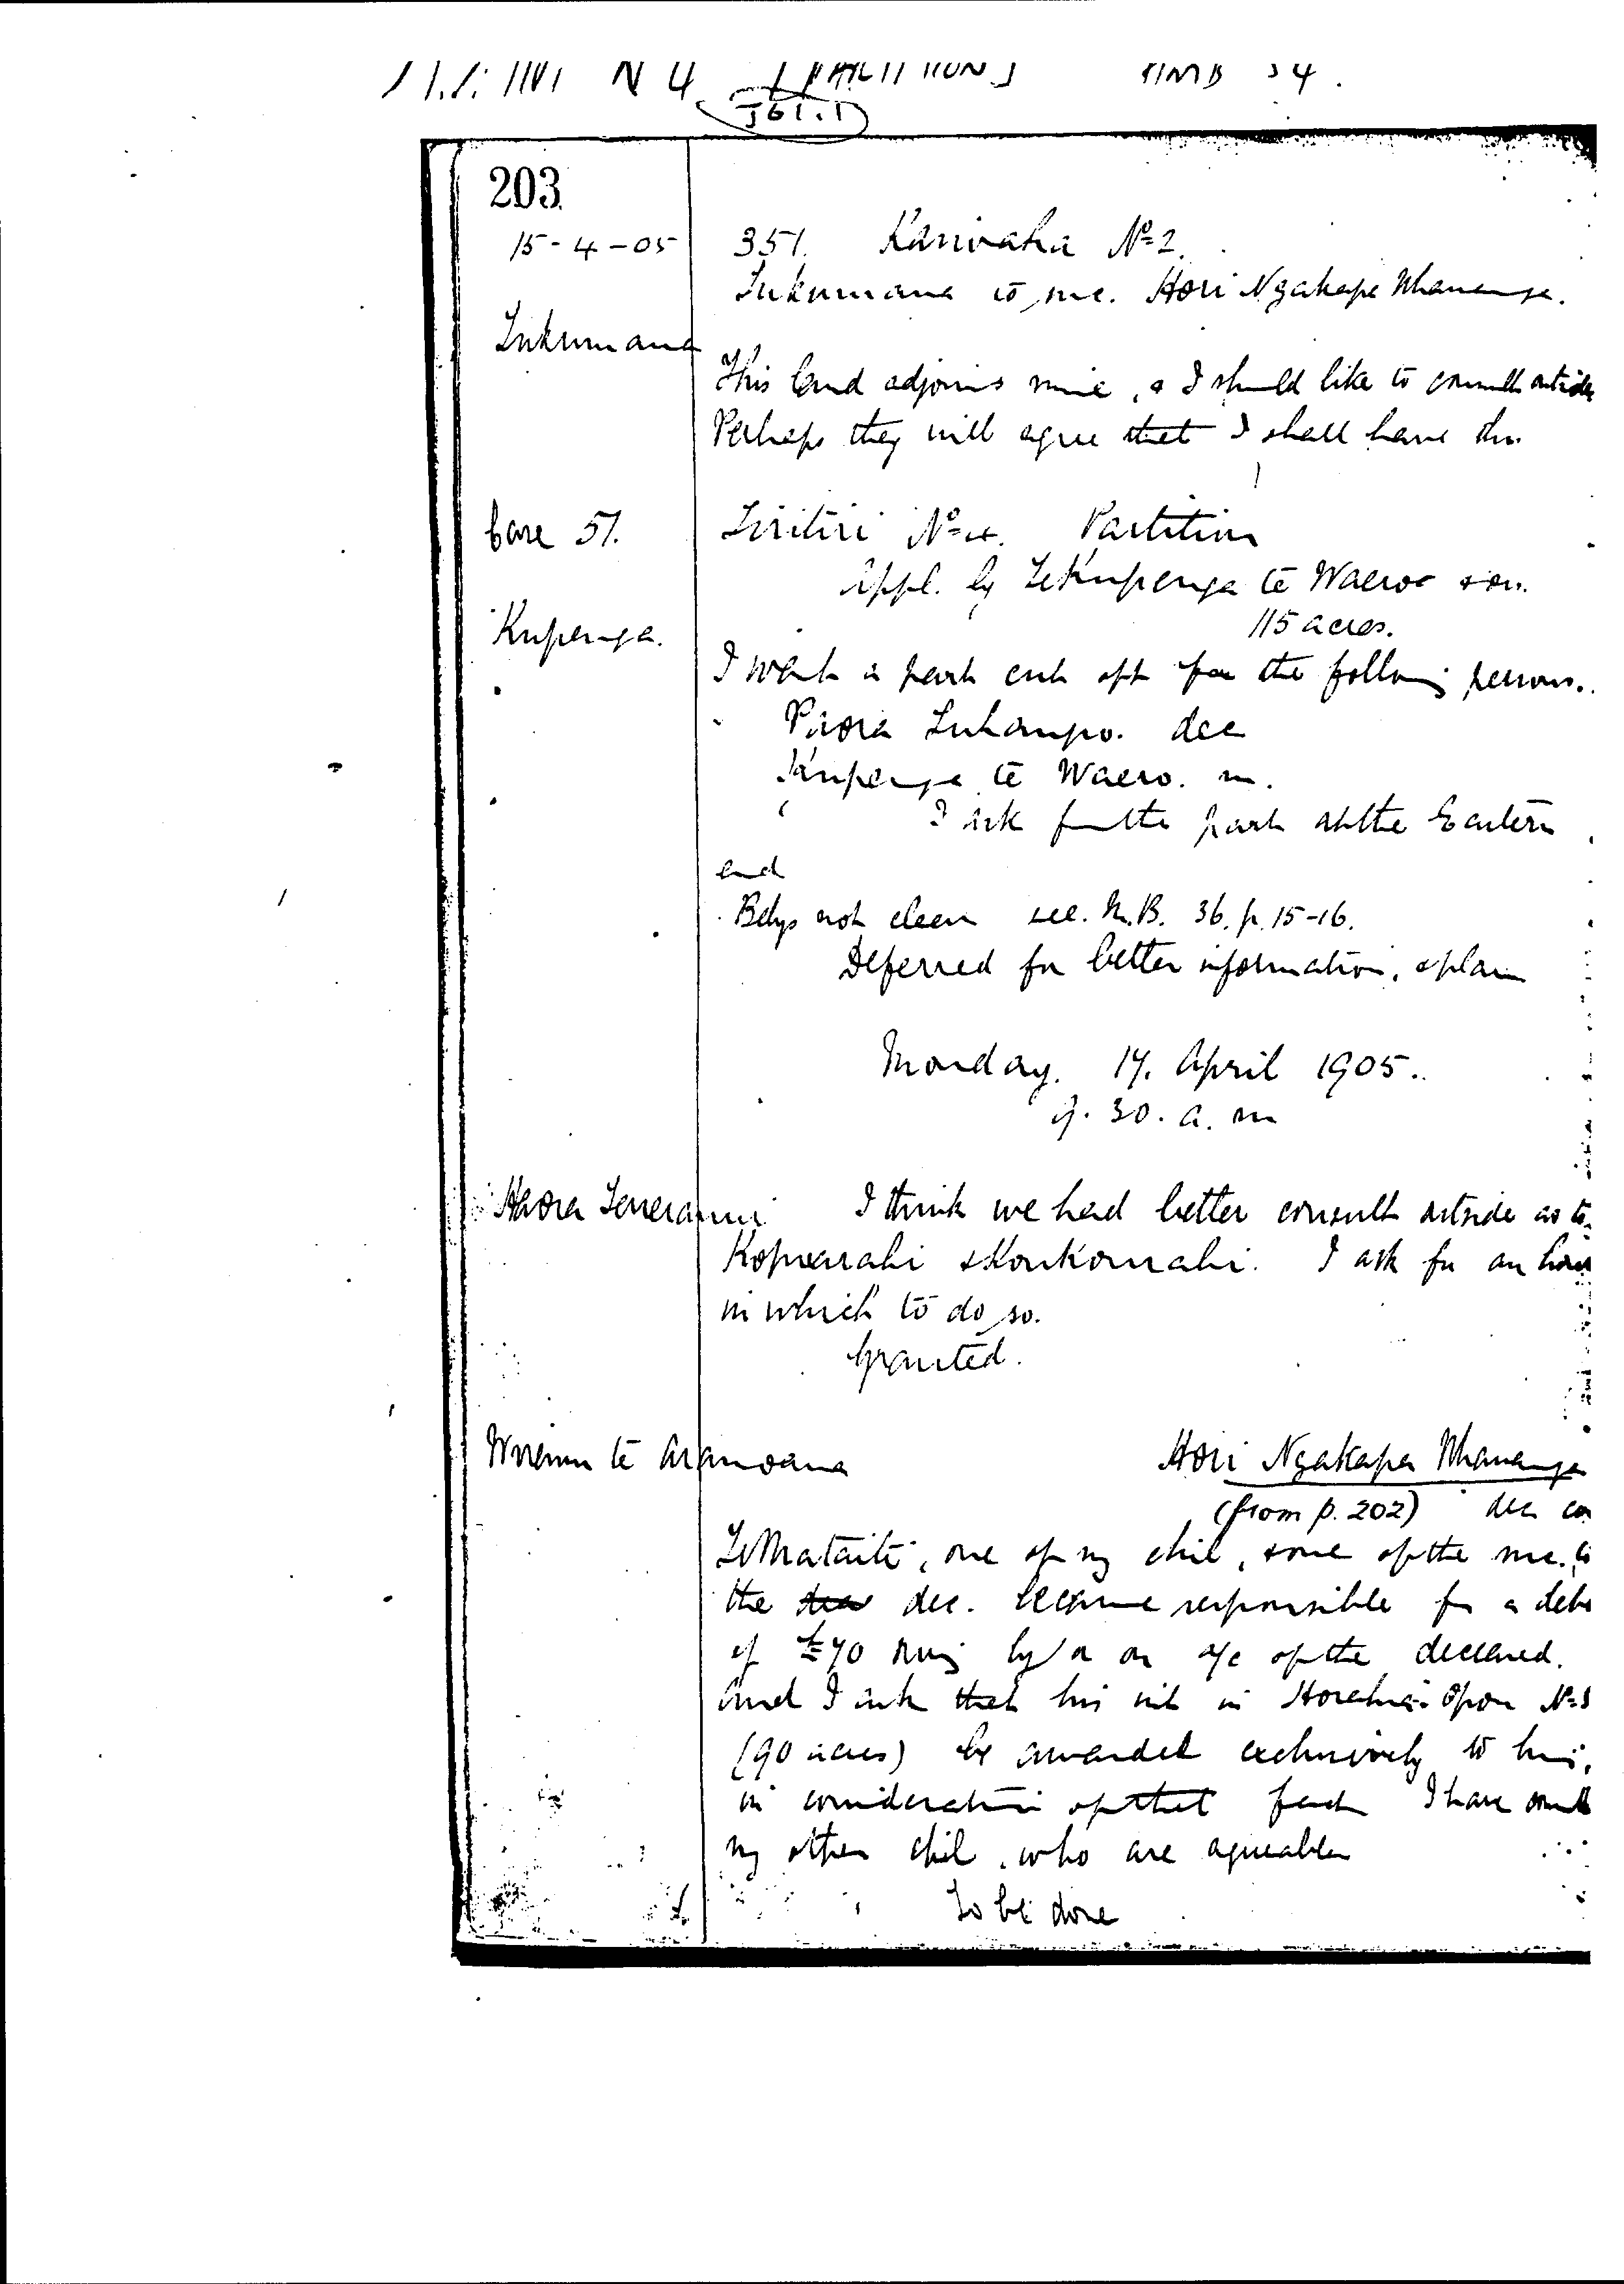 N 4
J61.1
203
15-4-05
351. No 2.
Tukumana to me. Hori Ngakapa Whanaunga.
Tukumana
This land adjoins mine, & I should like to consult outside
Perhaps they will agree that I shall have this
Case 51.
Tiritiri No 4. Partition
Appl. by Te Kupenga te Waero & ors.
115 acres.
Kupenga.
I want a part cut off for the following persons.
Paora Tuhaupo. dec
Kupenga te Waero. m.
I ask for the part at the Eastern
end
Bdys not clear see. M.B. 36. p. 15-16.
Deferred for better information, & plan
Monday. 17. April 1905.
9.30. a.m
Haora Tareranui
I think we had better consult outside as to
Kopuarahi & Koukourahi. I ask for an hour
in which to do so.
Granted.
Wiremu te Aramoana
Hori Ngakapa Whanaunga
(from p. 202) dec
Te Mataiti, one of my chil, & one of the suc. to
the dec. became responsible for a debt
of £70 owing by or on a/c of the deceased.
And I ask that his int in Horahia Opou No
(90 acres) be awarded exclusively to him,
in consideration of that fact I have
my other chil, who are agreeable
To be done